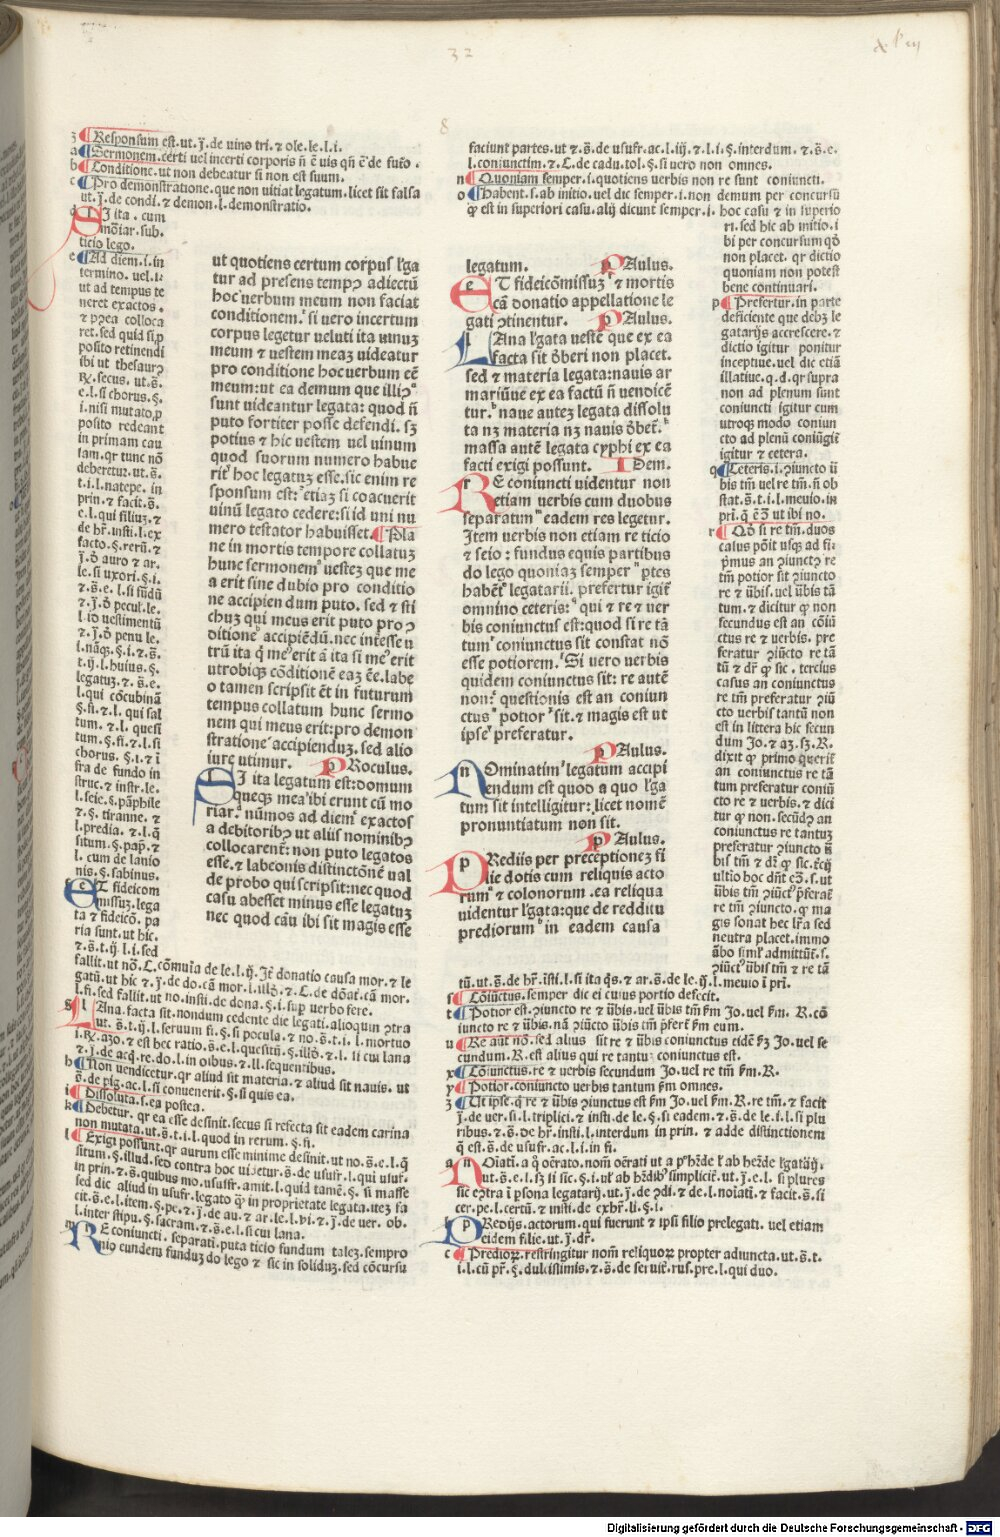 32
8
Responsum est.ut.j̄.de vino tri.⁊ ole.le.l.i.
Sermonem.certi vel incerti corporis
Conditione.ut non debeatur si non est suum.
Pro demonstratione.que non vitiat legatum.licet sit falsa
ut.j̄.de condi.⁊ demon.l.demonstratio.
SI ita . cum
ticio lego.
Ad diem.i.in
termino. vel.i.
ut ad tempus te
neret exactos.
ret.sed quid si
posito retinendi
sibi ut thesaurꝫ
e.l.si chorus.§.
i.nisi mutato
posito redeant
in primam cau
sam.qr tunc nō
deberetur.ut.s̄.
t.i.l.natepe. in
prin.⁊ facit.s̄.
e.l.qui filiuꝫ.⁊
de hr̄.insti.l.ex
facto.§.rerū.⁊
j̄.ō auro ⁊ ar.
le.si uxori.§.i.
⁊.s̄.e. l.si fūdū
⁊.j̄.ō pecul.le.
l.id vestimentū
⁊.j̄.ō penu le.
t.ij.l.huius.§.
legatuꝫ.⁊.s̄.e.
l.qui cōcubinā
§.fi.⁊.l. qui sal
tum. ⁊.l. quesi
tum.§.fi.⁊.l.si
chorus. §.i.⁊ ī
fra de fundo in
struc.⁊ instr.le.
l.seie.§.pāphile
⁊.§. tiranne. ⁊
l.predia. ⁊.l.q̄
situm.§.pap̄.⁊
l. cum de lanio
nis.§.sabinus.
ET fideicom
missuꝫ.lega
ta ⁊ fideicō. pa
ria sunt.ut hic.
⁊.s̄.t.ij.l.i.sed
ut quotiens certum corpus lega
tur ad presens tempꝰ adiectū
hoc verbum meum non faciat
conditionem. si vero incertum
corpus legetur veluti ita vinuꝫ
meum ⁊ vestem meaꝫ videatur
pro conditione hoc verbum eē
meum:ut ea demum que illiꝰ
sunt videantur legata: quod n̄
puto fortiter posse defendi. sꝫ
potius ⁊ hic vestem vel vinum
quod suorum numero habue
rit hoc legatuꝫ esse.sic enim re
sponsum est: etiaꝫ si coacuerit
vinū legato cedere:si id uni nu
mero testator habuisset. Pla
ne in mortis tempore collatuꝫ
hunc sermonem vesteꝫ que me
a erit sine dubio pro conditio
ne accipiendum puto. sed ⁊ sti
chuꝫ qui meus erit puto pro ↄ
ditione accipiēdū.nec interesse u
trū ita q̄ meꝰ erit ā ita si meꝰ erit
utrobiqꝫ cōditionē eaꝫ ēe.labe
o tamen scripsit ēt in futurum
tempus collatum hunc sermo
nem qui meus erit:pro demon
stratione accipienduꝫ.sed alio
iure utimur. PRoculus.
SI ita legatum est:domum
queqꝫ mea ibi erunt cū mo
riar. nūmos ad diem exactos
a debitoribꝰ ut aliis nominibꝰ
collocarent: non puto legatos
esse.⁊ labeonis distinctōnē val
de probo qui scripsit:nec quod
casu abesset minus esse legatuꝫ
nec quod cāu ibi sit magis esse
fallit.ut nō.C.cōmūia de le.l.ij. Itē donatio causa mor.⁊ le
gatū.ut hic ⁊.j̄.de do.cā mor.i.illō.⁊.C.de dōat.cā mor.
l.fi.sed fallit.ut no.insti.de dona.§.i.sup verbo fere.
LAna.facta sit.nondum cedente die legati.alioquin ↄtra
ut. s̄.t.ij.l.seruum fi.§.si pocula.⁊ no.s̄.t.i. l. mortuo
Non vendicetur.qr aliud sit materia.⁊ aliud sit nauis. ut
s̄.de pig.ac.l.si convenerit.§.si quis ea.
Dissoluta.s.ea postea.
Debetur. qr ea esse desinit.secus si refecta sit eadem carina
non mutata.ut.s̄.t.i.l.quod in rerum.§.fi.
Exigi possunt.qr aurum esse minime desinit.ut no.s̄.e.l.q̄
situm.§.illud.sed contra hoc videtur.s̄.de usufr.l.qui usuf.
in prin.⁊.s̄.quibus mo.usuffr.amit.l.quid tamē.§. si masse
sed dic aliud in usufr.legato qꝫ in proprietate legata.iteꝫ fa
cit.s̄.e.l.item.§.pe.⁊ j̄.de au.⁊ ar.le.l.vi.⁊.j̄.de ver. ob.
l.inter stipu.§.sacram.⁊.s̄.e.l.si cui lana.
RE coniuncti. separati.puta ticio fundum taleꝫ.sempro
nio eundem funduꝫ do lego ⁊ sic in soliduꝫ.sed cōcursu
faciunt partes.ut ⁊.s̄.de usufr.ac.l.iij.⁊.l.i.§.interdum.⁊.s̄.e.
l.coniunctim.⁊.C.de cadu.tol.§.si vero non omnes.
Quoniam semper.i.quotiens verbis non re sunt coniuncti.
Habent.s.ab initio.vel dic semper.i.non demum per concursū
qꝫ est in superiori casu.alij dicunt semper.i. hoc casu ⁊ in superio
ri.sed hic ab initio.i
bi per concursum qō
non placet. qr dictio
quoniam non potest
bene continuari.
Prefertur.in parte
deficiente que debꝫ le
gatarijs accrescere.⁊
dictio igitur ponitur
inceptiue.vel dic etiā
illatiue.q.d.qr supra
non ad plenum sunt
coniuncti igitur cum
utroqꝫ modo coniun
cto ad plenū coniūgit
igitur ⁊ cetera.
Ceteris.i.ↄiuncto ū
bis tm̄ vel re tm̄.n̄ ob
stat.s̄.t.i.l.meuio.in
Qō si re tm̄.duos
casus pōit usqꝫ ad fi.
pꝫmus an ↄiunctꝰ re
tm̄ potior sit ↄiuncto
re ⁊ ūbis.vel ūbis tā
tum.⁊ dicitur qꝫ non
secundus est an cōiū
ctus re ⁊ verbis. pre
feratur ↄiūcto re tā
tū ⁊ dr̄ qꝫ sic. tercius
casus an coniunctus
re tm̄ preferatur ↄiū
cto verbis tantū non
est in littera hic secun
dum Jo.⁊ aꝫ.sꝫ.R.
dixit qꝫ primo querit
an coniunctus re tā
tum preferatur coniū
cto re ⁊ verbis.⁊ dici
tur qꝫ non.secūdꝰ an
coniunctus re tantuꝫ
preferatur ↄiuncto ū
re tm̄ ↄiuncto.qꝫ ma
gis sonat hec lr̄a sed
neutra placet.immo
legatum. PAulus.
ET fideicōmissuꝫ ⁊ mortis
cā donatio appellatione le
gati ↄtinentur. PAulus.
LAna legata veste que ex ea
facta sit ōberi non placet.
sed ⁊ materia legata:nauis ar
mariūue ex ea factū n̄ vendicē
tur. naue auteꝫ legata dissolu
ta nꝫ materia nꝫ nauis ōbet.
massa autē legata cyphi ex ea
facti exigi possunt. IDem.
RE coniuncti videntur non
etiam verbis cum duobus
separatim eadem res legetur.
Item verbis non etiam re ticio
⁊ seio : fundus equis partibus
do lego quoniaꝫ semper ptes
habēt legatarii. prefertur igit
omnino ceteris: qui ⁊ re ⁊ ver
bis coniunctus est:quod si re tā
tum coniunctus sit constat nō
esse potiorem. Si vero verbis
quidem coniunctus sit: re autē
non: questionis est an coniun
ctus potior sit.⁊ magis est ut
ipse preferatur.
PAulus.
NOminatim legatum accipi
endum est quod a quo lega
tum sit intelligitur: licet nomē
pronuntiatum non sit.
PAulus.
PRediis per preceptioneꝫ fi
lie dotis cum reliquis acto
rum ⁊ colonorum .ea reliqua
videntur legata:que de redditu
prediorum in eadem causa
tū.ut.s̄.de hr̄.isti.l.si ita qs̄.⁊ ar.s̄.de le.ij.l.meuio ī pri.
Cōiūctus.semper dic ei cuius portio defecit.
Potior est.ↄiuncto re ⁊ ūbis.vel ūbis tm̄ ẜm Jo.vel ẜm. R.cō
iuncto re ⁊ ūbis.nā ↄiūcto ūbis tm̄ p̄fert̄ ẜm eum.
Re aut nō.sed alius sit re ⁊ ūbis coniunctus eidē ẜꝫ Jo.vel se
cundum.R.est alius qui re tantū coniunctus est.
Cōiunctus.re ⁊ verbis secundum Jo.vel re tm̄ ẜm.R.
Potior.coniuncto verbis tantum ẜm omnes.
Ut ipse.q̄ re ⁊ ūbis ↄiunctus est ẜm Jo.vel ẜm.R.re tm̄.⁊ facit
j̄.de ver.si.l.triplici.⁊ insti.de le.§.si eadem.⁊.s̄.de le.i.l.si plu
ribus.⁊.s̄.de hr̄.insti.l.interdum in prin.⁊ adde distinctionem
q̄ est.s̄.de usufr.ac.l.i.in fi.
ut.s̄.e.l.sꝫ si sic.§.i.vel ab hrdibꝰ simplicit̄.ut.j̄.e.l.si plures
cer.pe.l.certū.⁊ insti.de exhr̄.li.§.i.
PRedijs.actorum.qui fuerunt ⁊ ipsi filio prelegati. vel etiam
eidem filie.ut.j̄.dr̄.
Predioꝝ.restringitur nom̄ reliquoꝝ propter adiuncta.ut.s̄.t.
i.l.cū pr̄.§.dulcissimis.⁊.s̄.de seruit̄.rus.pre.l.qui duo.
Digitalisierung gefördert durch die Deutsche Forschungsgemeinschaft - DFG